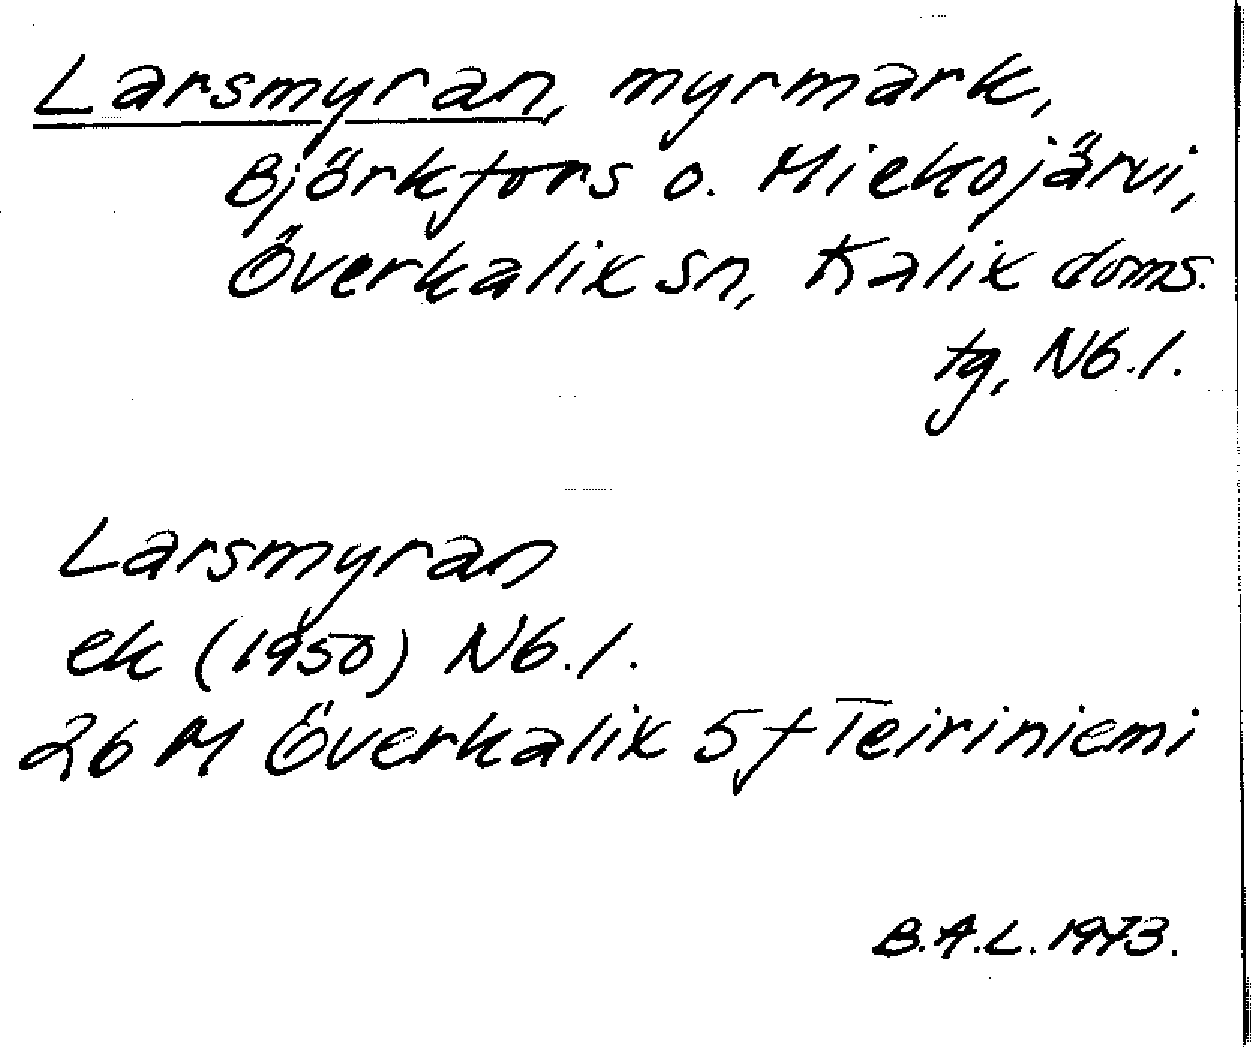 Larsmyran, myrmark,
Björkfors o. Miekojärvi,
Överkalix sn, Kalix doms.
tg, Nb.l.
Larsmyran
ek (1950) Nb.l.
26 M Överkalix 5 f Teiriniemi
B.A.L. 1973.